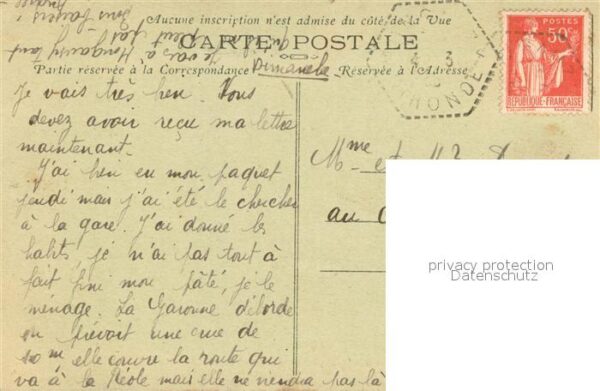 Aucune inscription n'est admise du côté de la Vue
CARTE POSTALE
Partie réservée à la Correspondance
Réservée à l'Adresse
Dimanche
Je vais très bien. Vous
devez avoir reçu ma lettre
maintenant.
J'ai bien eu mon paquet
jeudi mais j'ai été le chercher
à la gare. J'ai donné les
habits, je n'ai pas tout à
fait fini mon pâté, je le
ménage. La Garonne déborde
on prévoit une crue de
10 m elle couvre la route qui
va à la Réole mais elle ne viendra pas là
Mme et M
au
POSTES
50c
REPUBLIQUE-FRANÇAISE
GIRONDE
privacy protection
Datenschutz